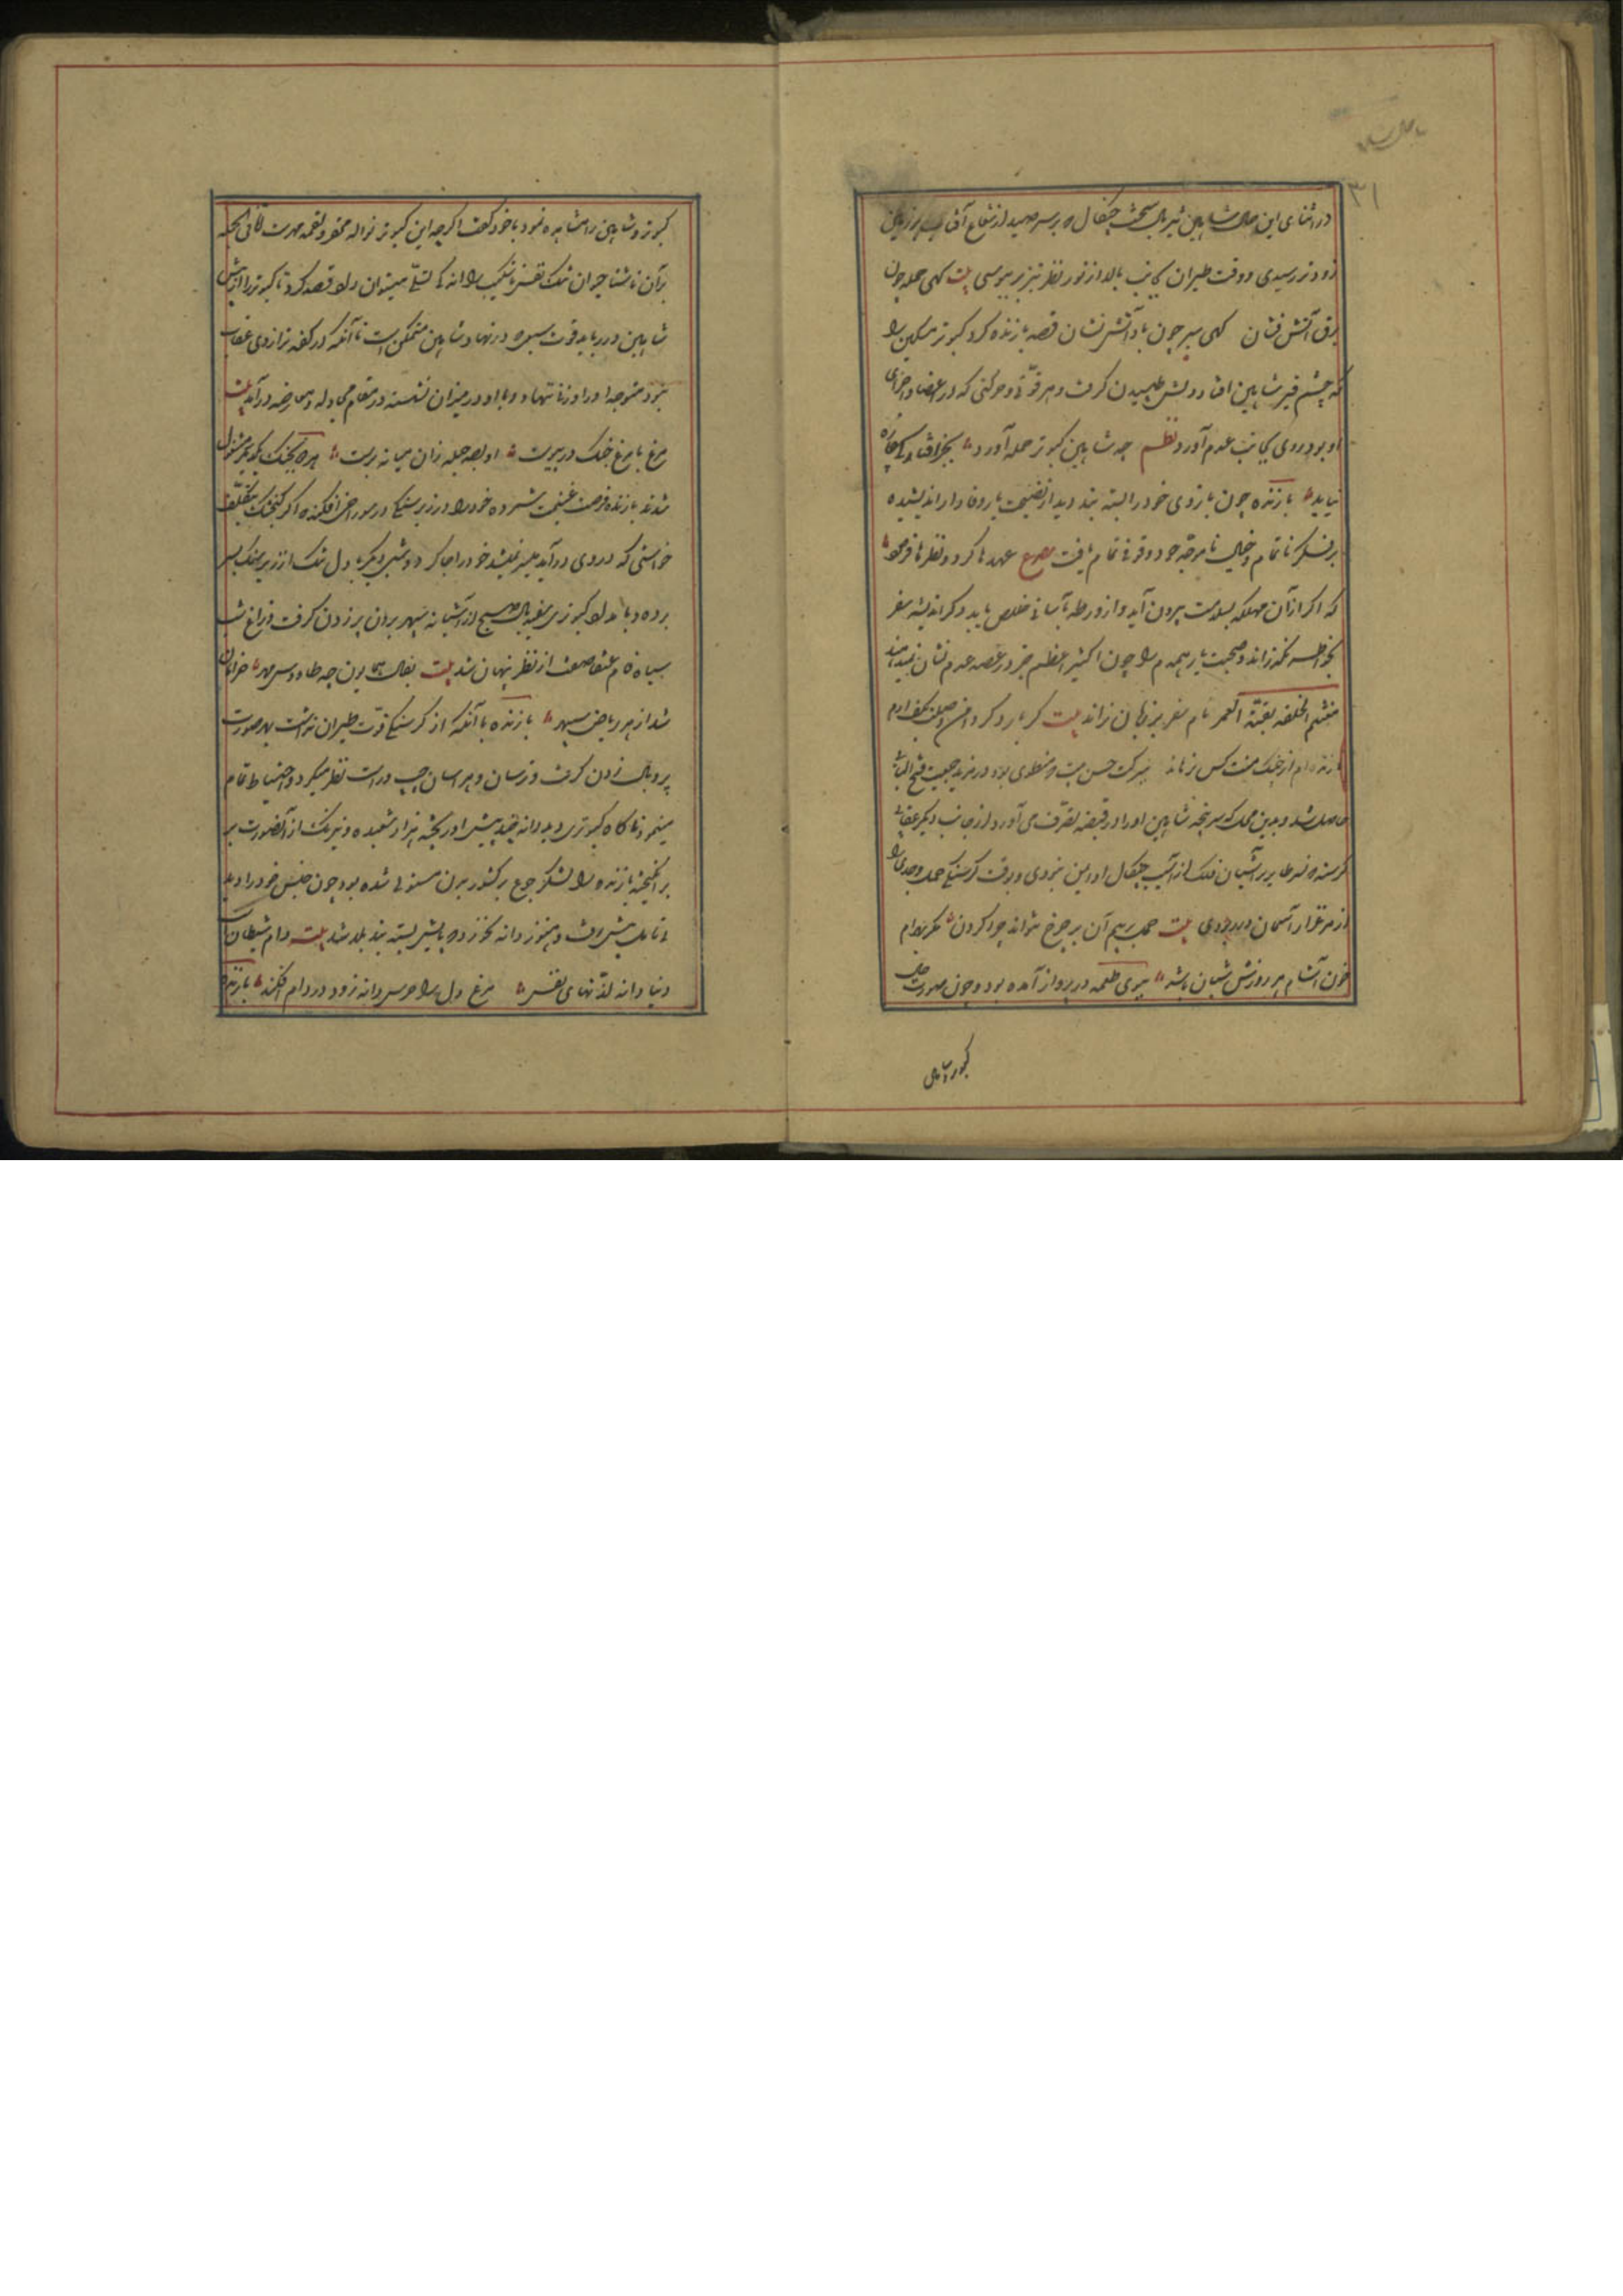 ۳۱
در اثنای این حال شاهین تیز بال سخت چنگال که بر سر صید از شعاع آفتاب بر زمین
زودتر رسیدی و وقت طیران بجانب بالا از نور نظر تیزپر برسی بیت کهی حمله چون
برق آتش فشان کهی سیر چون باد آتش نشان قصد بازنده کرد کبوتر مسکین را
که چشم بر شاهین افتاد دلش طپیدن گرفت و هر قوّتی و حرکتی که در اعضا و اجزای
او بود روی بجانب عدم آورد نظم چه شاهین کبوتر حمله آورد بجز افتادگی چاره
نیاید بازنده چون بازوی خود را بسته بند دید از نصیحت یار وفادار اندیشیده
بر فکر ناتمام و خیال نامرجه خود وقوفی تمام یافت مصرع عهدها کرد و نظرها فرمود
که اگر از آن مهلکه بسلامت بیرون آید و از ورطه بآسانی خلاص یابد دگر اندیشه سفر
بخاطر نگذراند و صحبت یار همدم را چون اکسیر اعظم جز در عرصه عدم نشان نمیدهند
مغتنم بقیّة العمر نام سفر بر زبان نراند بیت گر بار دگر دامن وصلت بکف آرم
تا زنده‌ام از چنگ منت کس نرهاند ببرکت حسن نیت
حاصل شد و بدین محل که سر پنجه شاهین او را در قبضه تصرف می‌آورد از جانب دیگر عقابی
گرسنه که نسر طایر بر آشیان فلک از آسیب چنگال او ایمن نبودی و وقت گرسنگی حمل و جدی را
از مرغزار آسمان در ربودی بیت حمل بیم آن بر چرخ نتواند چرا کردن مگر بهرام
خون آشام هر روزش شبان باشد ببوی طعمه در پرواز آمده بود و چون صورت حال
کبوتر و شاهین
کبوتر و شاهین را مشاهده نمود با خود گفت اگرچه این کبوتر نواله مختصر و لقمه
بر آن ناشتا میتوان و قصد کرد تا کبوتر را از پیش
شاهین در رباید قوت سبعیه در نهاد شاهین متمکن است با آنکه در کفه ترازوی عقاب
نبرد متوجه او را وزنی ننهاد و با او در میزان نشسته در مقام مجادله و معارضه در آمد بیت
مرغ با مرغ جنگ در پیوست او بصد حیله زان میانه برست هر دو بجنگ یکدیگر مشغول
شدند بازنده فرصت غنیمت شمرده خود را در زیر سنگی در سوراخی افکنده که اگر گنجشک بتکلف
خواستی که در وی در آید میسر نمیشد خود را جا کرد و شبی دیگر با دل تنگ از زیر سنگ بسر
برده و بامداد کبوتر سفید بال صبح از آشیانه سپهر بران پر زدن گرفت و زاغ شب
سیاه فام عنقا صفت از نظر پنهان شد بیت بفال همایون چه طاوس مهر خرامان
شد از هر ریاض سپهر بازنده با آنکه از گرسنگی قوّت طیران نداشت بهر صورت
پر و بال زدن گرفت و ترسان و هراسان چپ و راست نظر میکرد و احتیاط تمام
مینمود ناگاه کبوتری دید دانه چند پیش او ریخته هزار شعبده و نیرنگ از آن صورت بر
انگیخته بازنده را لشکر جوع بر کشور بدن مستولی شده بود چون جنس خود را دید
بی تامل پیش رفت و هنوز دانه نخورده پایش بسته بند بلا شد بیت دام شیطان است
دنیا دانه لذّتهای نفس مرغ دل را حرص دانه زود در دام افکند بازنده